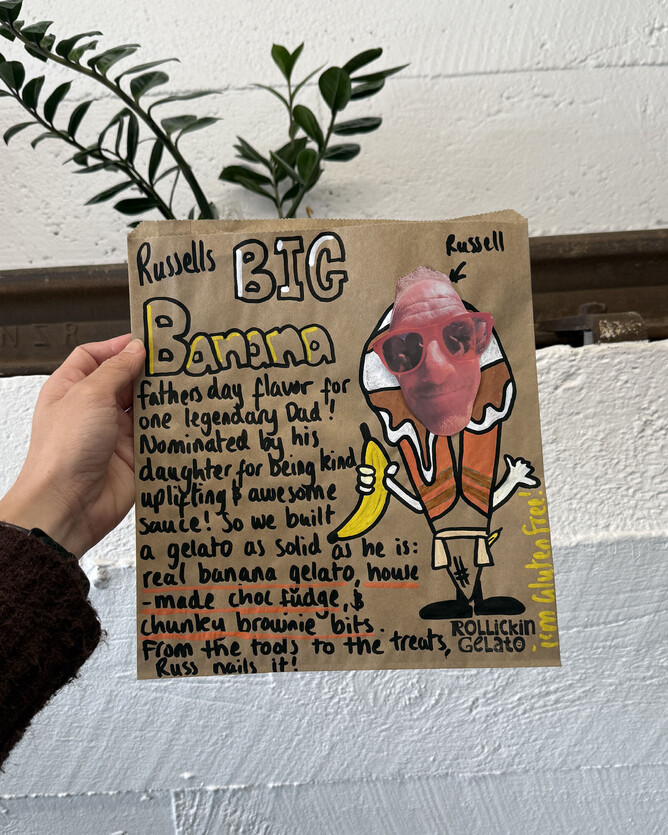 Russells BIG
Russell
Banana
fathers day flavor for
one legendary Dad!
Nominated by his
daughter for being kind
uplifting & awesome
sauce! So we built
a gelato as solid as he is:
real banana gelato, house
-made choc fudge, &
chunky brownie bits.
From the tools to the treats,
Russ nails it!
ROLLICKIN
GELATO
i'm Gluten Free!
NZR